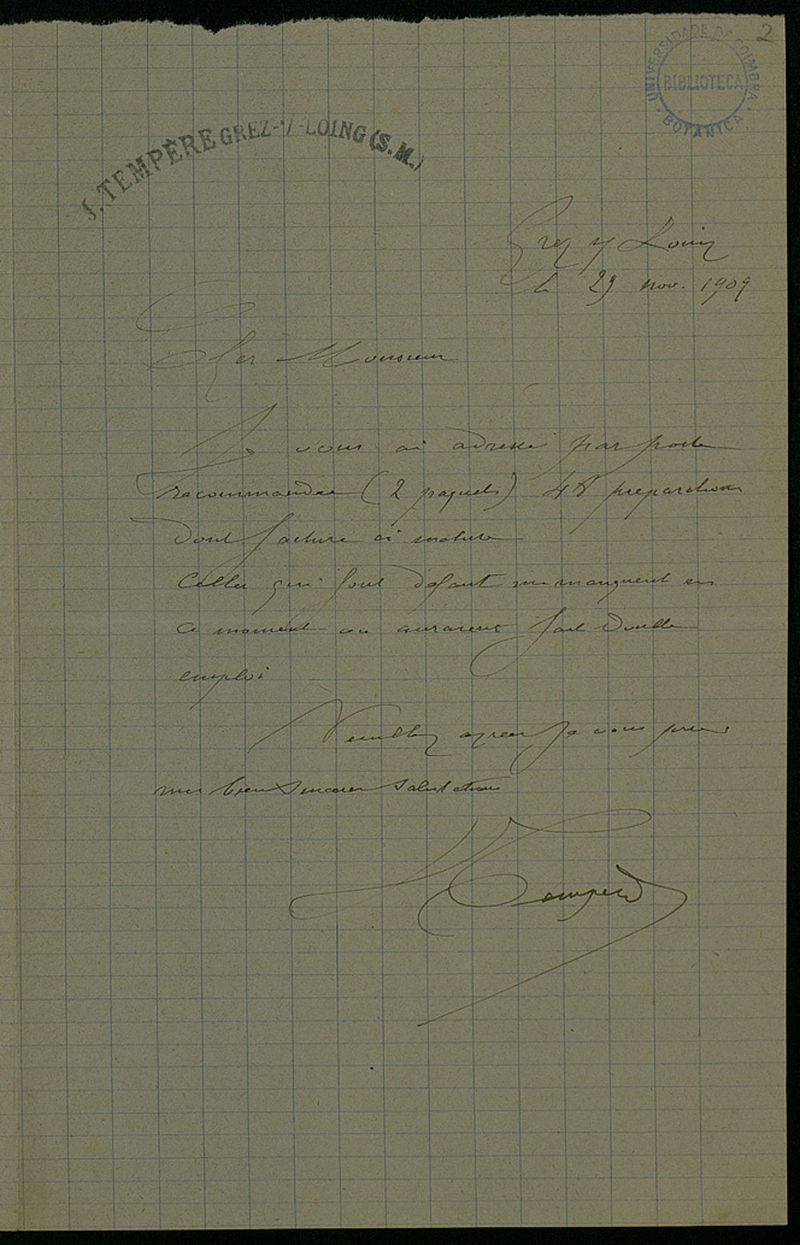 2
UNIVERSIDADE DE COIMBRA
BIBLIOTECA
BOTANICA
J. TEMPÈRE GREZ-s/-LOING (S. M.)
Grez s/ Loing
le 29 nov. 1909
Cher Monsieur
Je vous ai adressé par poste
recommandée (2 paquets) 48 preparations
dont facture ci incluse
Celles qui font défaut me manquent en
ce moment ou auraient fait double
emploi
Veuillez agréer je vous prie
mes bien sincères salutations
J Tempère